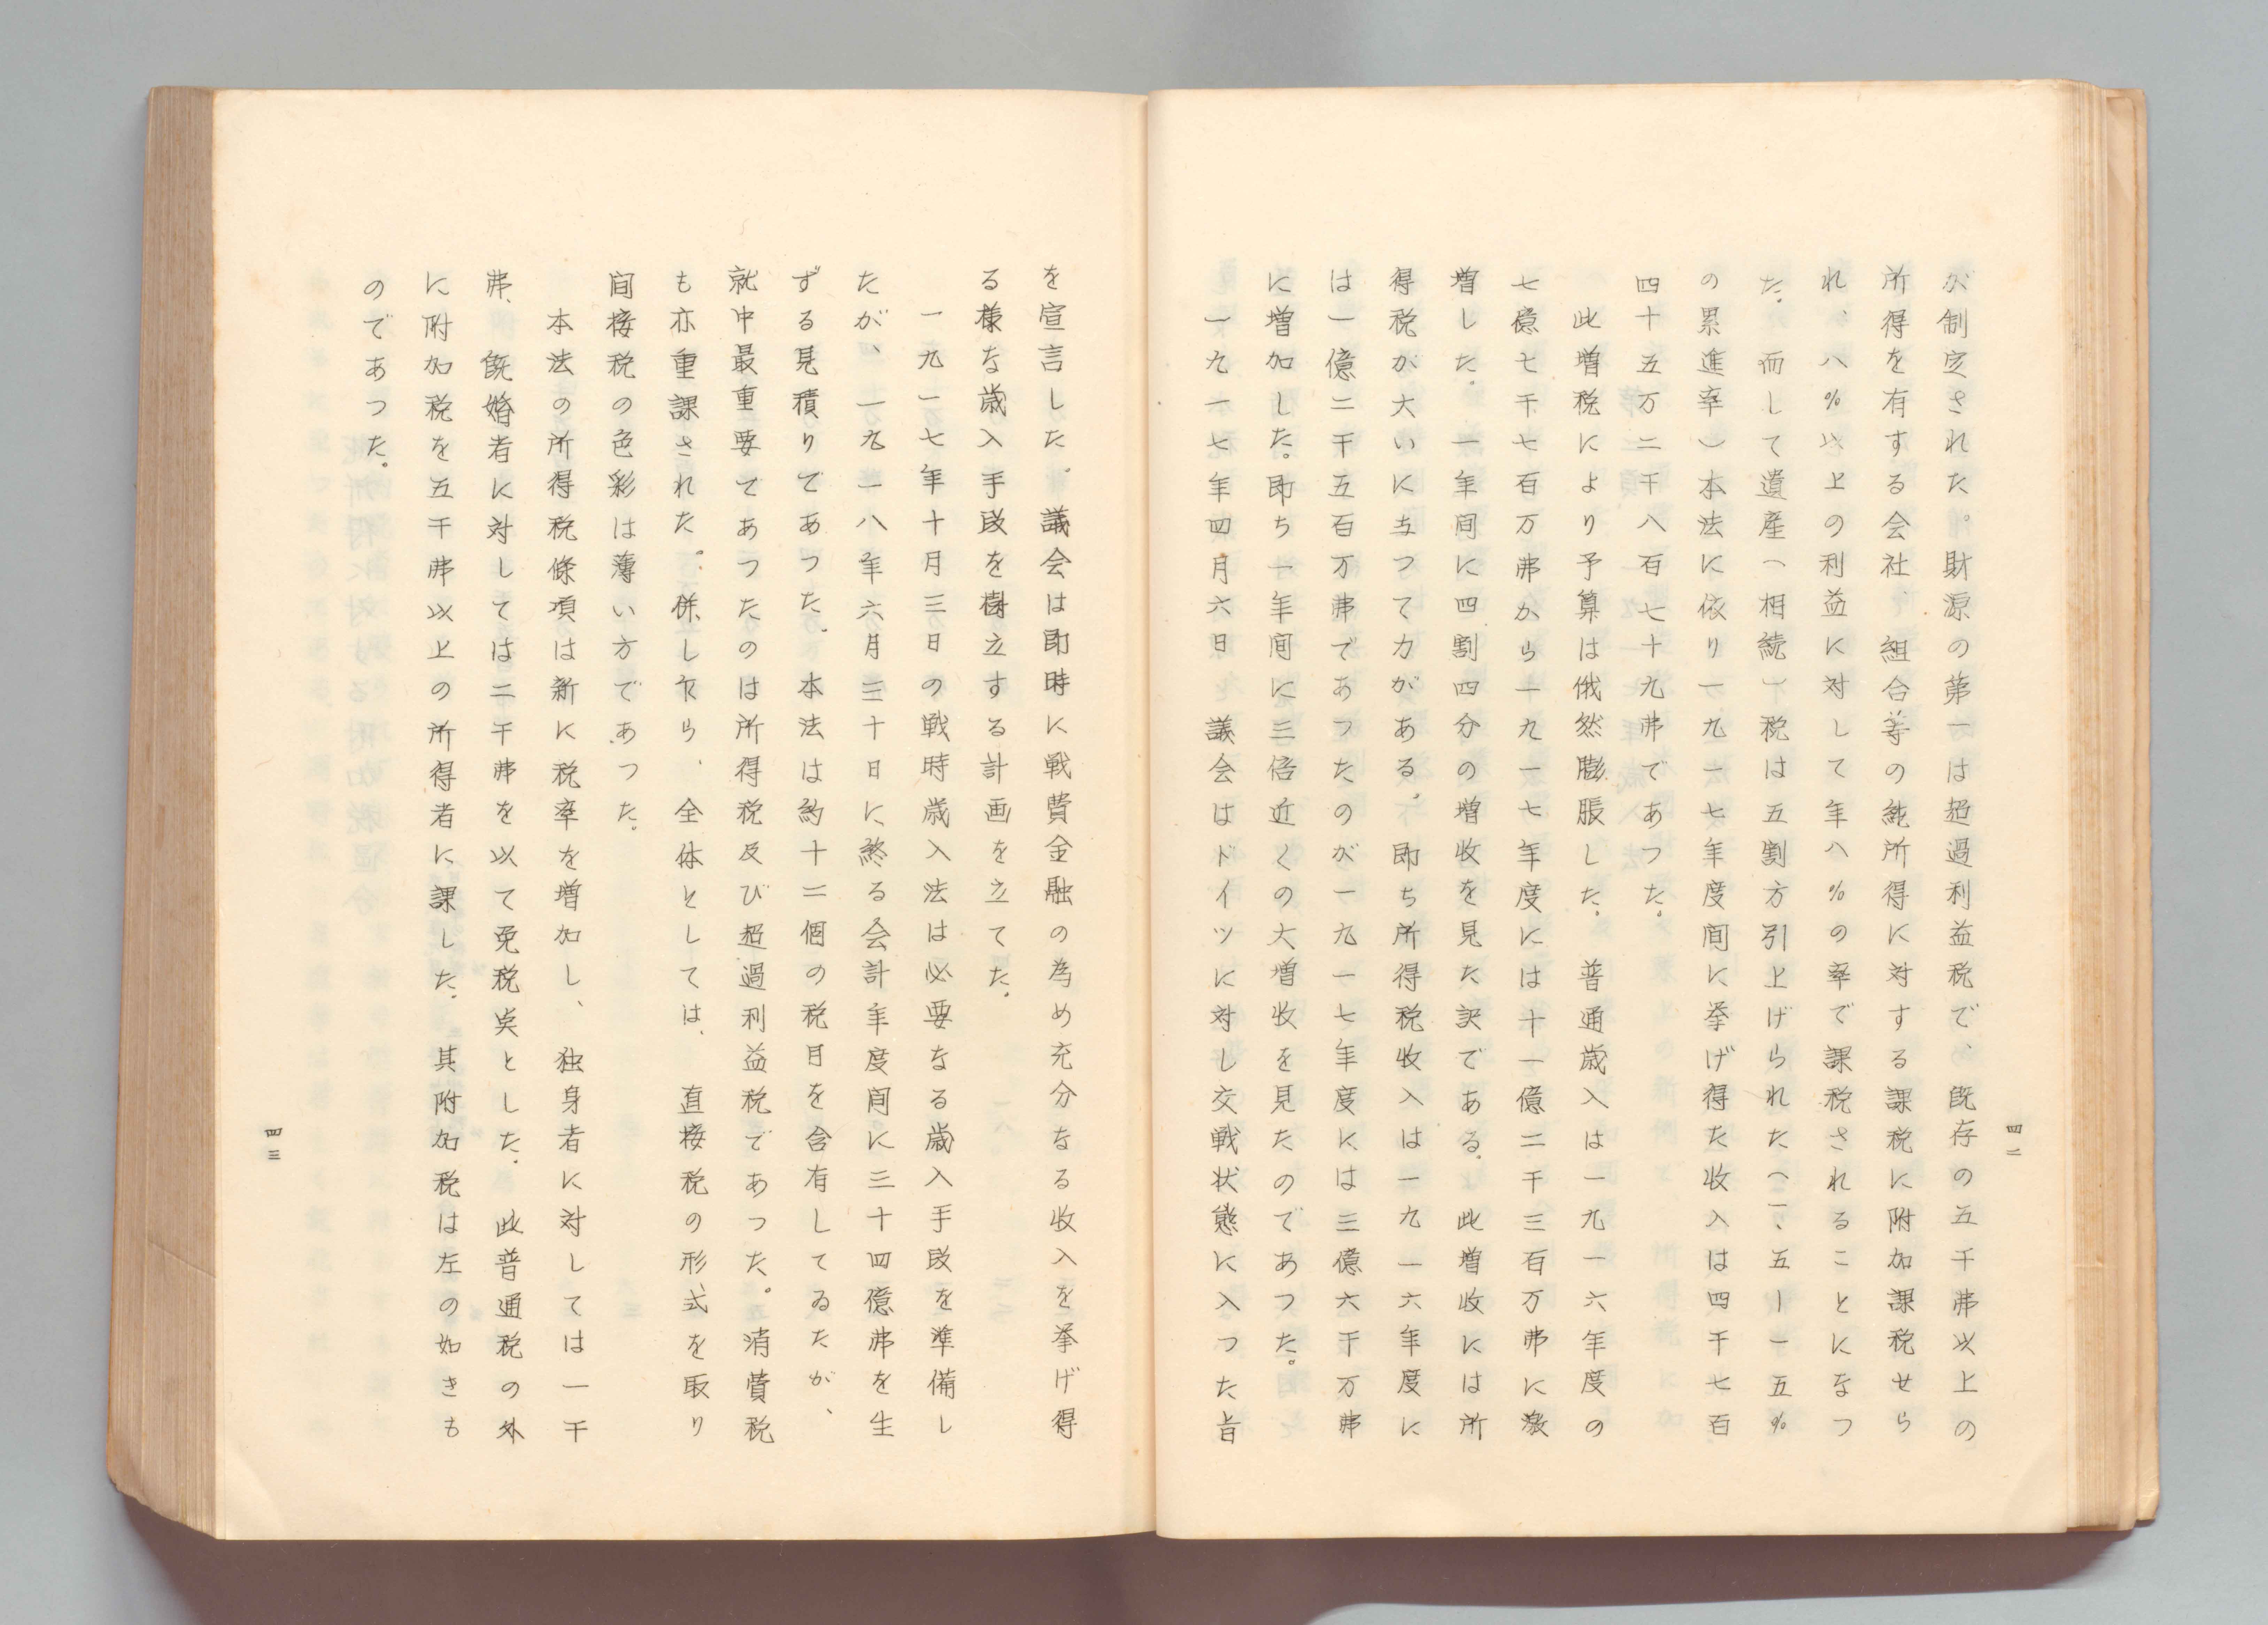 四二
が制定された。財源の第一は超過利益税で、既存の五千弗以上の
所得を有する会社、組合等の純所得に対する課税に附加課税せら
れ、八％以上の利益に対して年八％の率で課税されることになつ
た。而して遺産（相続）税は五割方引上げられた（一、五―一五％
の累進率）本法に依り一九一七年度間に挙げ得た收入は四千七百
四十五万二千八百七十九弗であつた。
此増税により予算は俄然膨脹した。普通歳入は一九一六年度の
七億七千七百万弗から一九一七年度には十一億二千三百万弗に激
増した。一年間に四割四分の増收を見た訳である。此増收には所
得税が大いに与つて力がある。即ち所得税收入は一九一六年度に
は一億二千五百万弗であつたのが一九一七年度には三億六千万弗
に増加した。即ち一年間に三倍近くの大増收を見たのであつた。
一九一七年四月六日　議会はドイツに対し交戦状態に入つた旨
を宣言した。議会は即時に戦費金融の為め充分なる收入を挙げ得
る様な歳入手段を樹立する計画を立てた。
一九一七年十月三日の戦時歳入法は必要なる歳入手段を準備し
たが、一九一八年六月三十日に終る会計年度間に三十四億弗を生
ずる見積りであつた。本法は約十二個の税目を含有してゐたが、
就中最重要であつたのは所得税及び超過利益税であつた。消費税
も亦重課された。併し乍ら、全体としては、直接税の形式を取り
間接税の色彩は薄い方であつた。
本法の所得税條項は新に税率を増加し、独身者に対しては一千
弗、既婚者に対しては二千弗を以て免税点とした。此普通税の外
に附加税を五千弗以上の所得者に課した。其附加税は左の如きも
のであつた。
四三